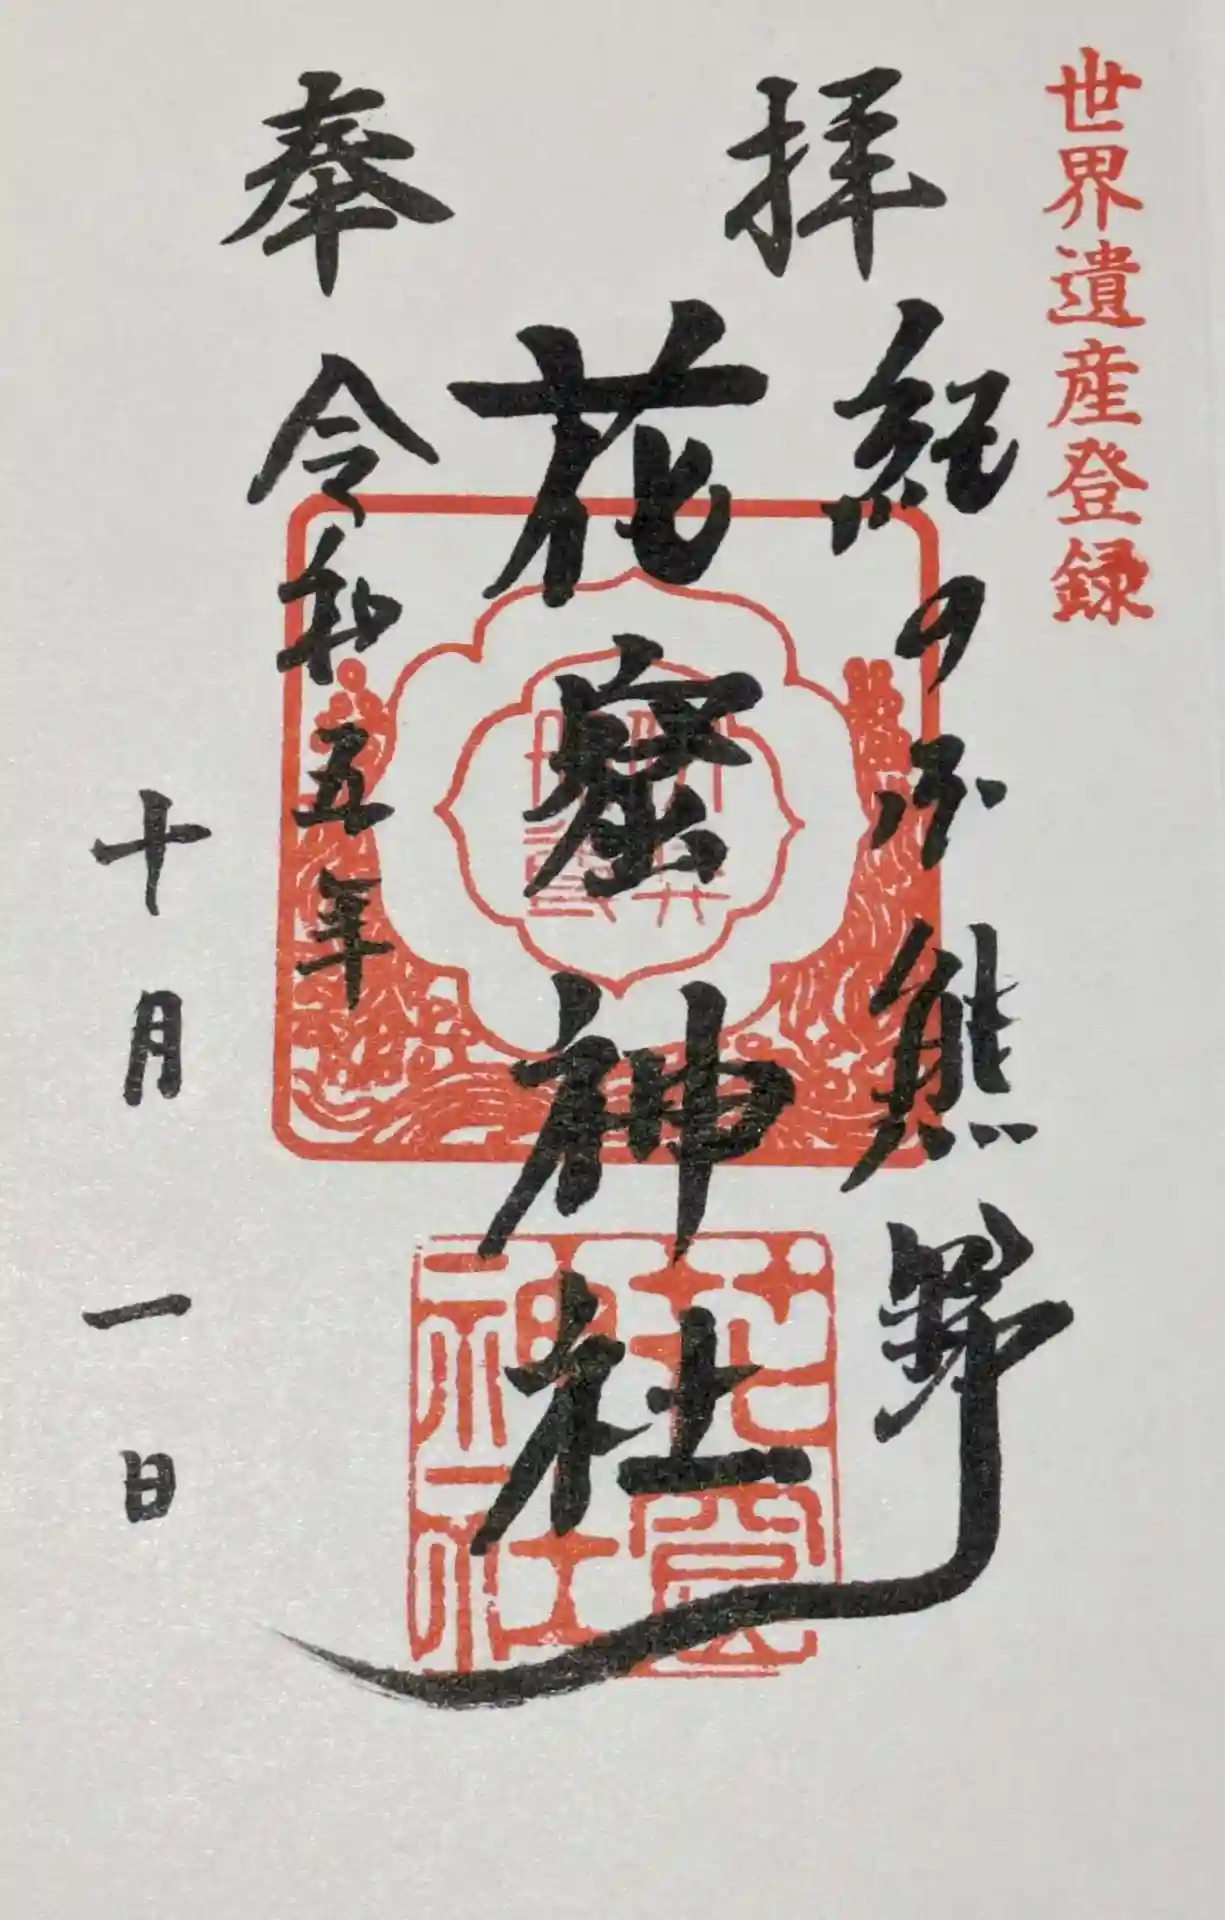 世界遺産登録
奉拝
紀の 熊野
花窟神社
令和五年
十月一日
花窟神社